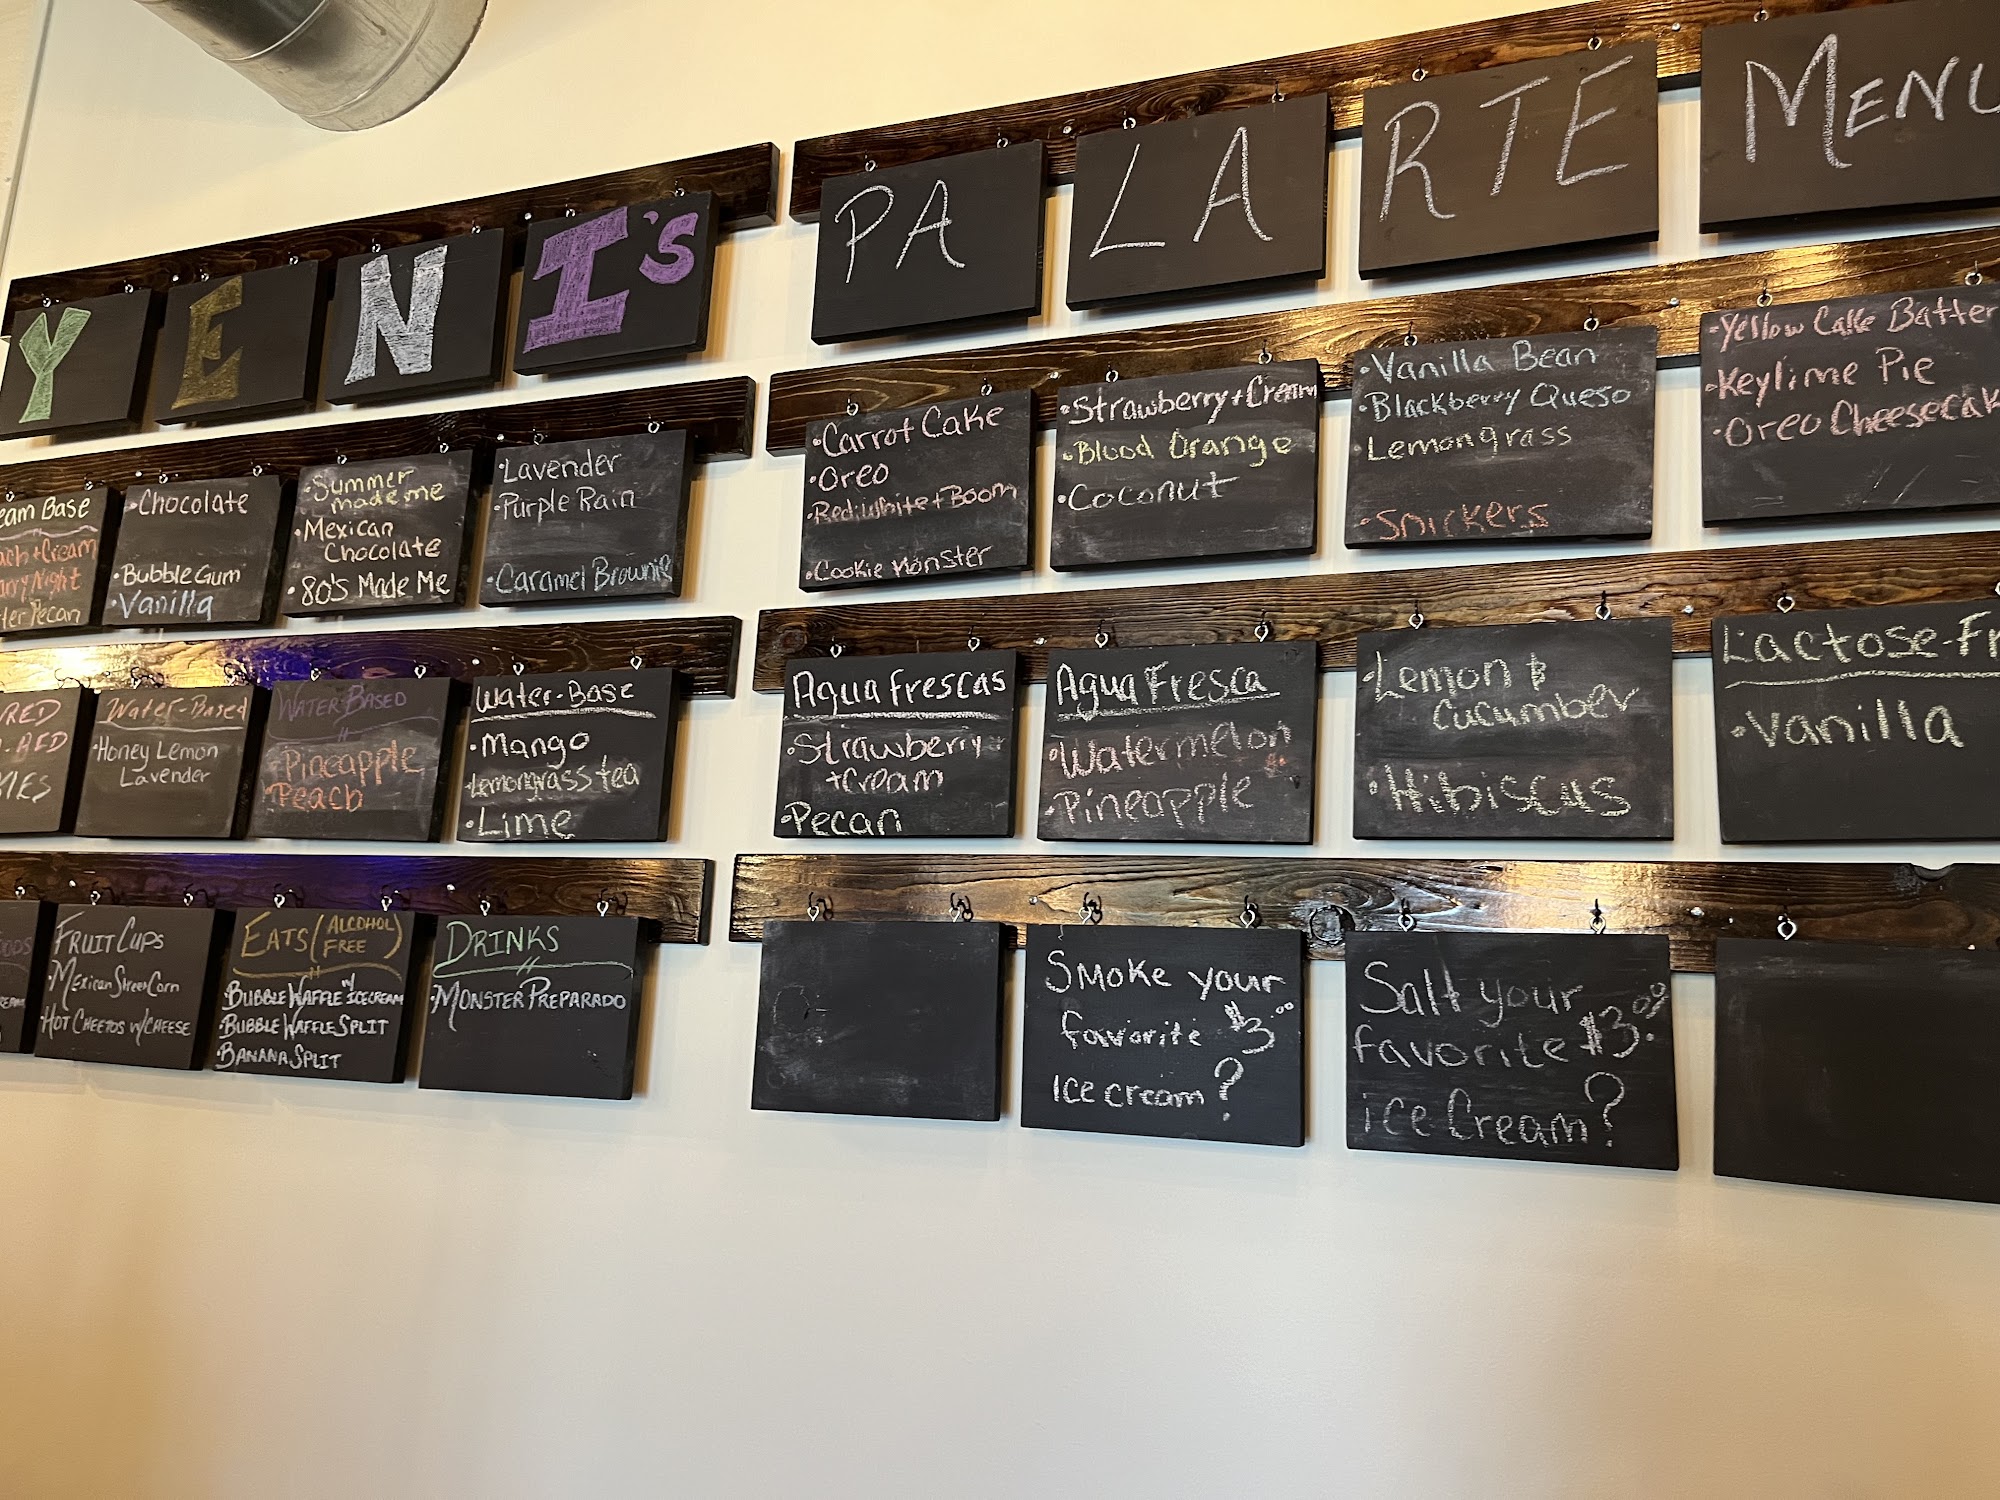 YENI'S
PA LA RTE MENU
eam Base
ach + Cream
arry Night
ter Pecan
• Chocolate
• Bubble Gum
• Vanilla
• Summer
made me
• Mexican
Chocolate
• 80's Made Me
• Lavender
• Purple Rain
• Caramel Brownie
• Carrot Cake
• Oreo
• Red, White + Boom
• Cookie Monster
• Strawberry + Cream
• Blood Orange
• Coconut
• Vanilla Bean
• Blackberry Queso
• Lemongrass
• Snickers
• Yellow Cake Batter
• Keylime Pie
• Oreo Cheesecak
RED
Water-Based
• Honey Lemon
Lavender
WATER-BASED
• Pineapple
• Peach
Water-Base
• Mango
• Lemongrass tea
• Lime
Agua Frescas
• Strawberry
+ Cream
• Pecan
Agua Fresca
• Watermelon
• Pineapple
• Lemon &
Cucumber
• Hibiscus
Lactose-Fr
• Vanilla
FRUIT CUPS
• MEXICAN STREET CORN
• HOT CHEETOS W/CHEESE
EATS (ALCOHOL
FREE)
• BUBBLE WAFFLE W/ ICECREAM
• BUBBLE WAFFLE SPLIT
• BANANA SPLIT
DRINKS
• MONSTER PREPARADO
Smoke your
favorite $3.00
ice cream?
Salt your
favorite $3.00
ice cream?